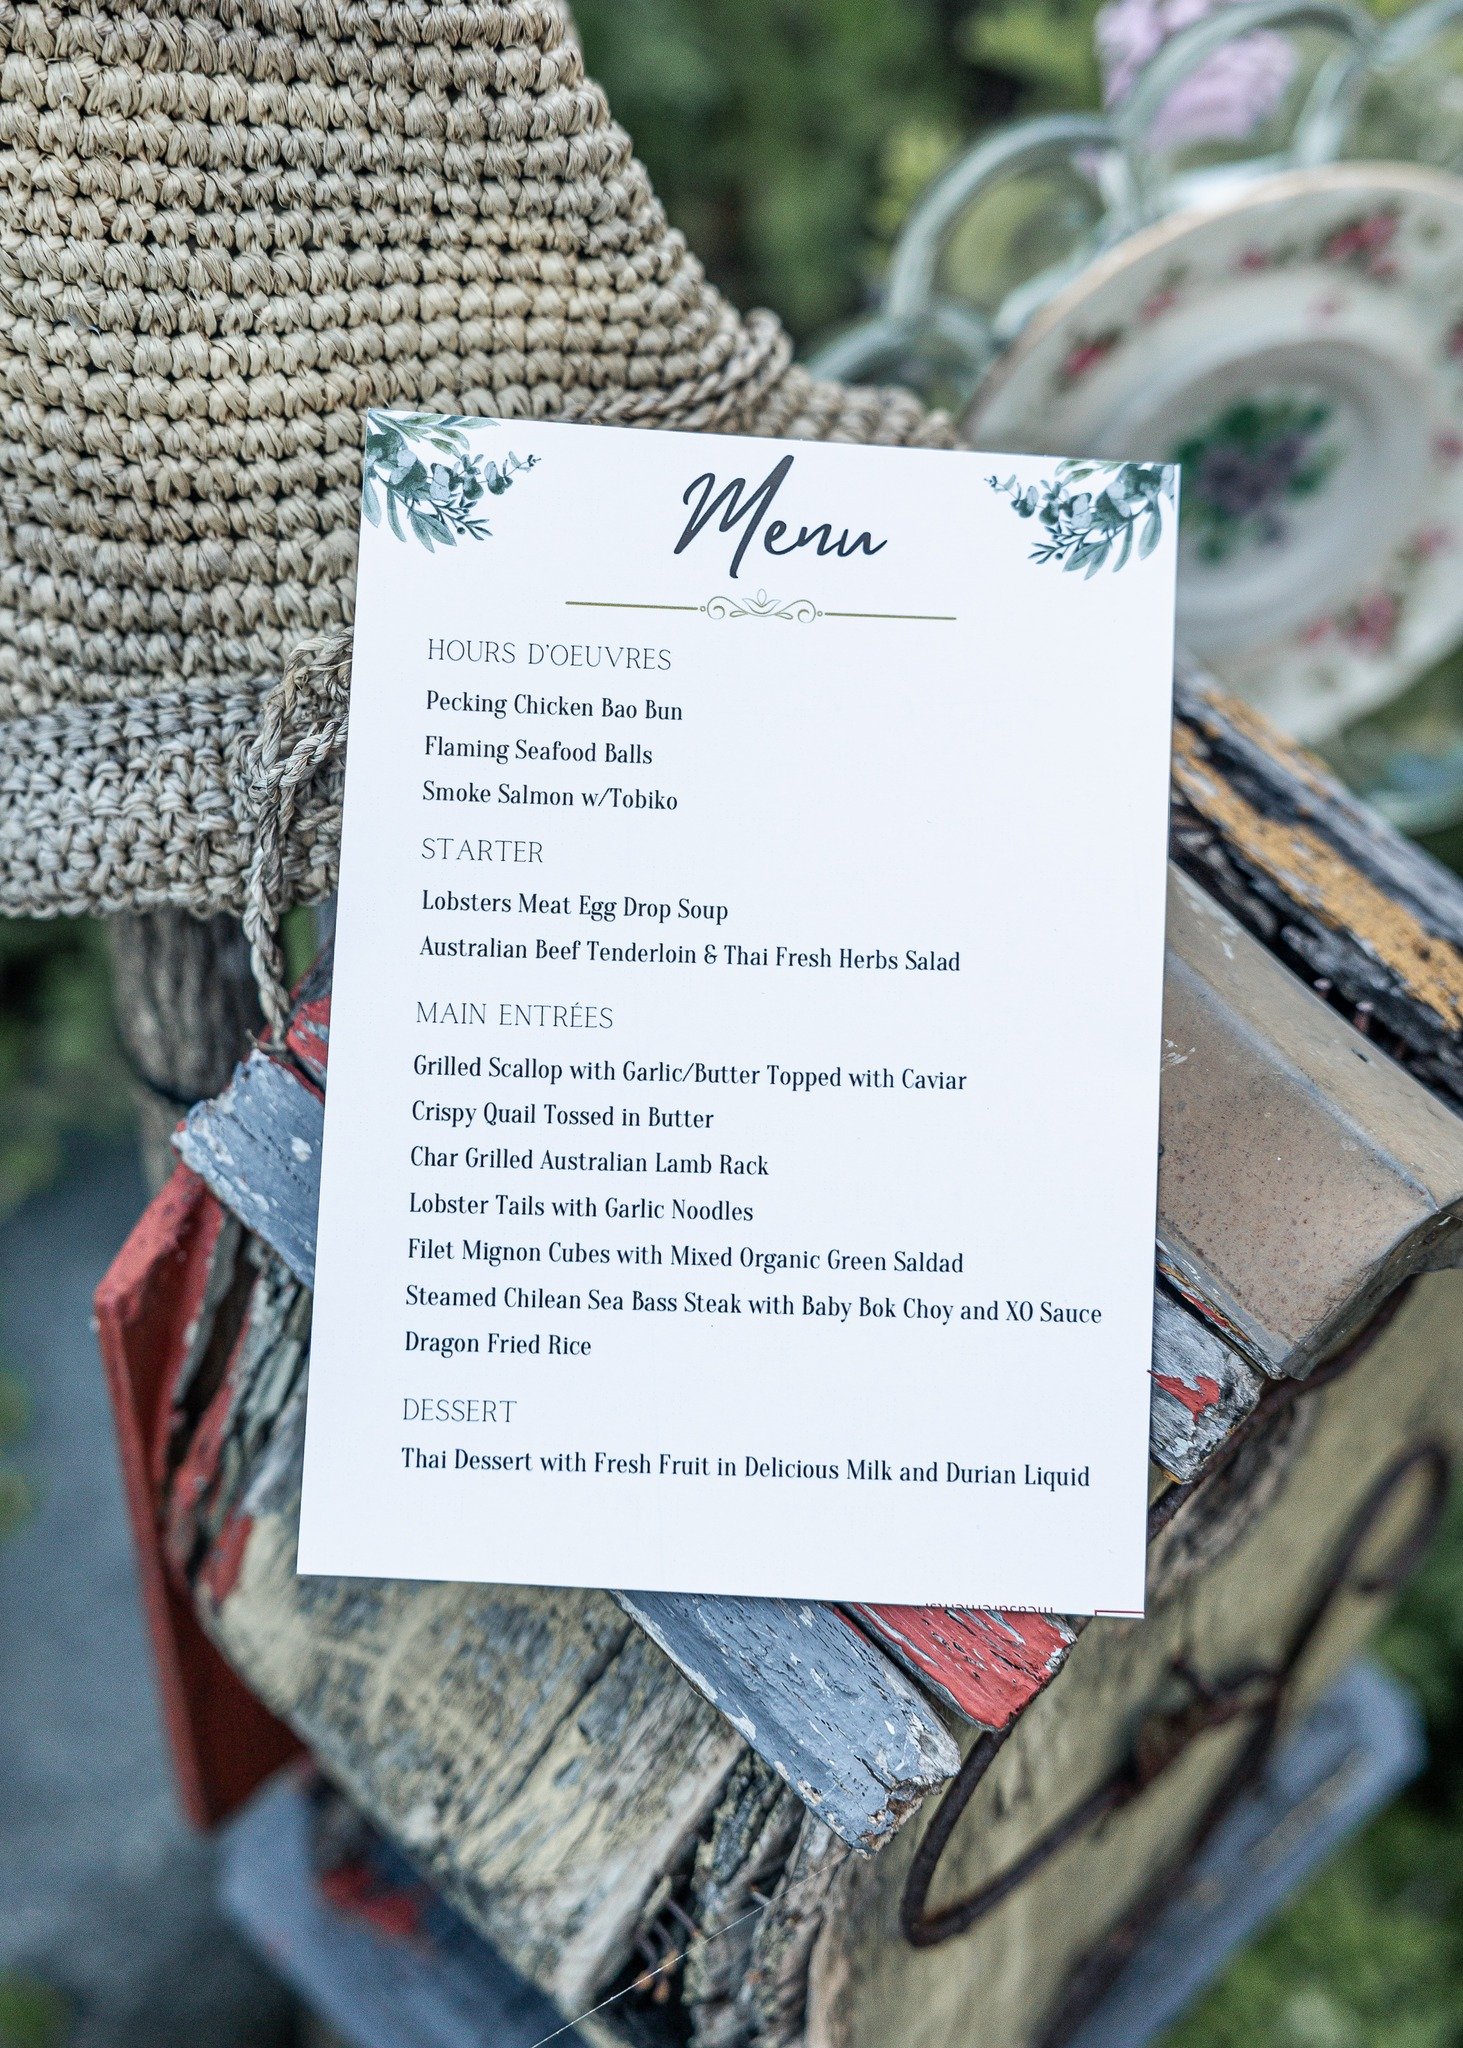 Menu
HOURS D'OEUVRES
Pecking Chicken Bao Bun
Flaming Seafood Balls
Smoke Salmon w/Tobiko
STARTER
Lobsters Meat Egg Drop Soup
Australian Beef Tenderloin & Thai Fresh Herbs Salad
MAIN ENTRÉES
Grilled Scallop with Garlic/Butter Topped with Caviar
Crispy Quail Tossed in Butter
Char Grilled Australian Lamb Rack
Lobster Tails with Garlic Noodles
Filet Mignon Cubes with Mixed Organic Green Saldad
Steamed Chilean Sea Bass Steak with Baby Bok Choy and XO Sauce
Dragon Fried Rice
DESSERT
Thai Dessert with Fresh Fruit in Delicious Milk and Durian Liquid